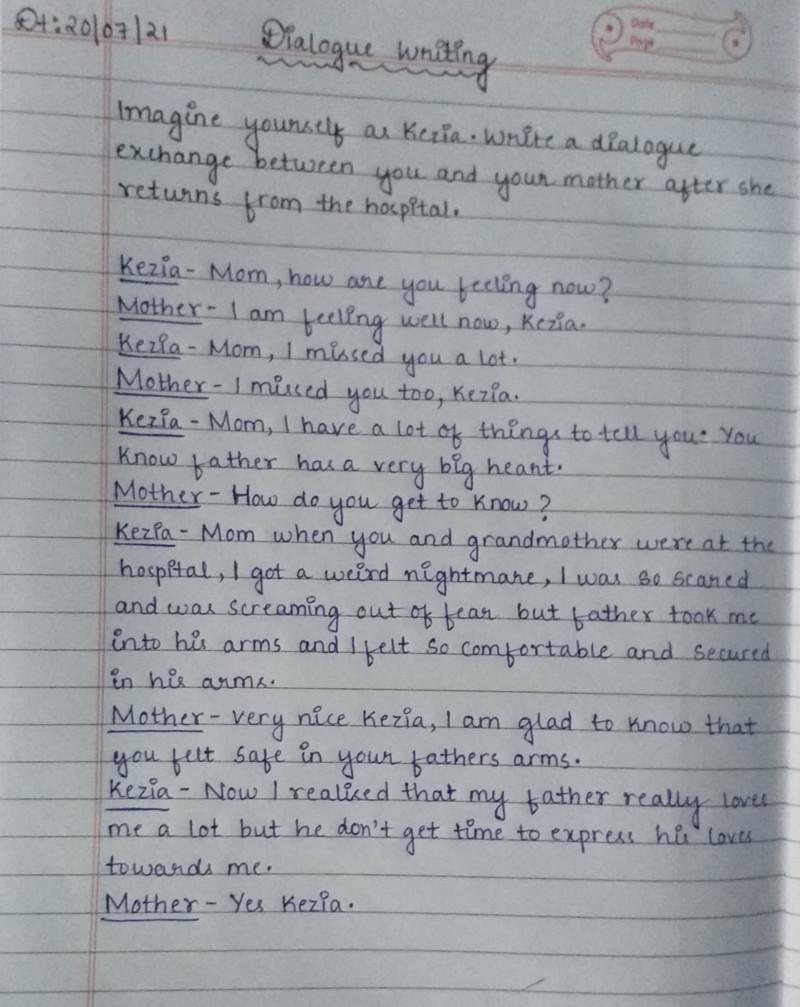 Dt:20/07/21
Dialogue Writing
Date
Page
Imagine yourself as Kezia. Write a dialogue
exchange between you and your mother after she
returns from the hospital.
Kezia- Mom, how are you feeling now?
Mother- I am feeling well now, Kezia.
Kezia- Mom, I missed you a lot.
Mother- I missed you too, Kezia.
Kezia- Mom, I have a lot of things to tell you. You
know father has a very big heart.
Mother- How do you get to know?
Kezia- Mom when you and grandmother were at the
hospital, I got a weird nightmare, I was so scared
and was screaming out of fear but father took me
into his arms and I felt so comfortable and secured
in his arms.
Mother- very nice Kezia, I am glad to know that
you felt safe in your fathers arms.
Kezia- Now I realised that my father really loves
me a lot but he don't get time to express his loves
towards me.
Mother- Yes Kezia.